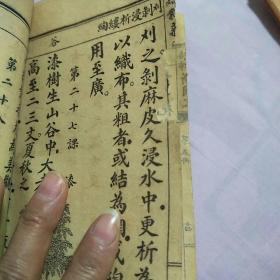 刈剥浸析縷綯
刈之剝麻皮久浸水中更析為
以織布其粗者或結為
用至廣
第二十七課 漆
谷
漆樹生山谷中大
高至二三丈夏秋之
第二十八